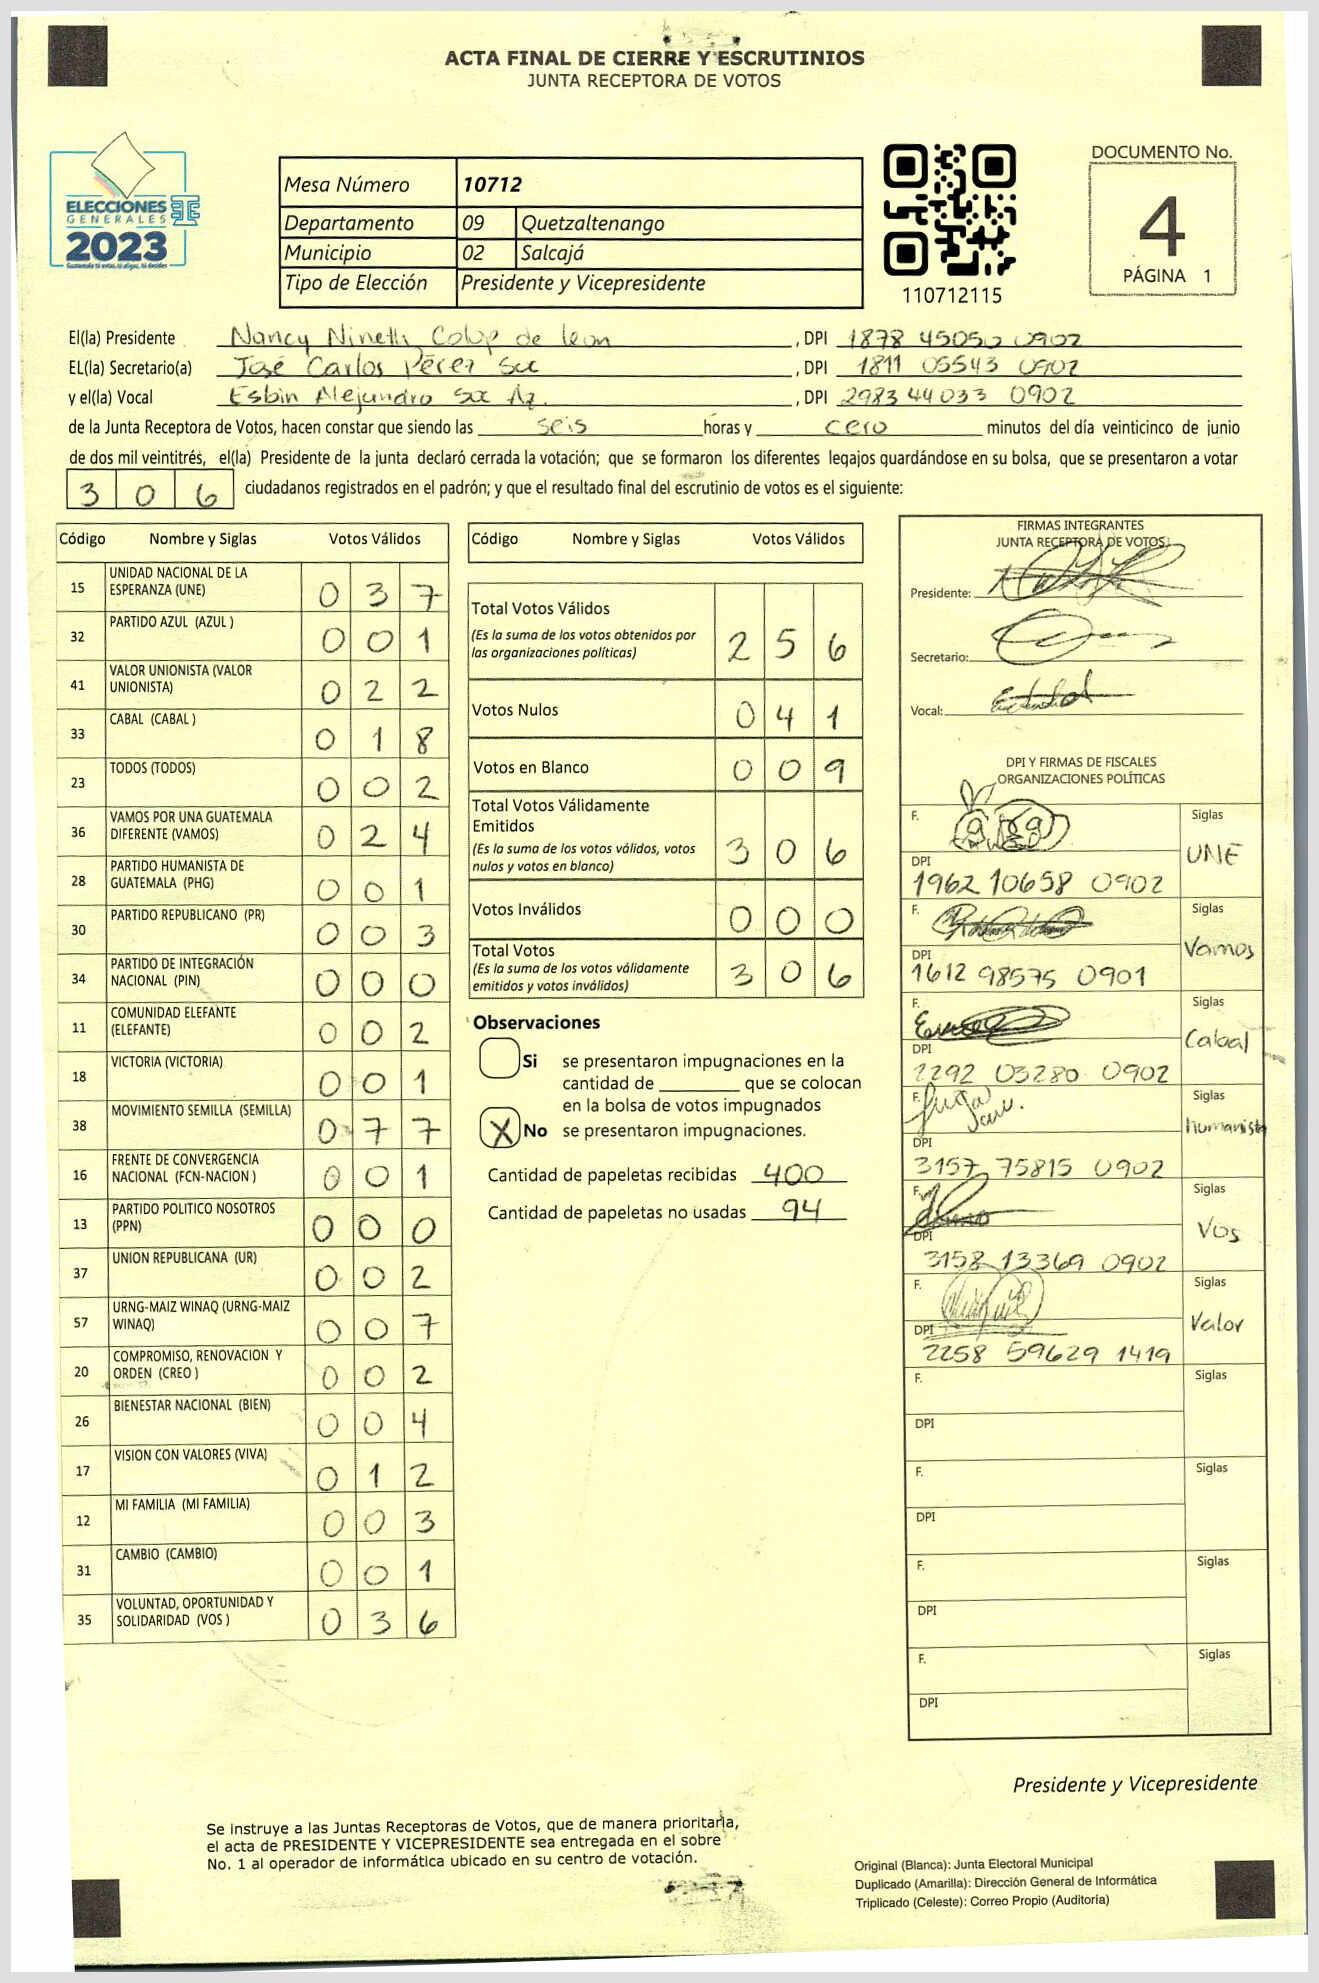 ACTA FINAL DE CIERRE Y ESCRUTINIOS
JUNTA RECEPTORA DE VOTOS
ELECCIONES
GENERALES
2023
Mesa Número 10712
Departamento 09 Quetzaltenango
Municipio 02 Salcajá
Tipo de Elección Presidente y Vicepresidente
110712115
DOCUMENTO No.
4
PÁGINA 1
El(la) Presidente Nancy Nineth Colop de leon , DPI 1878 45050 0902
EL(la) Secretario(a) José Carlos Pérez Sac , DPI 1811 05543 0902
y el(la) Vocal Esbin Alejandro Sac Az. , DPI 2983 44033 0902
de la Junta Receptora de Votos, hacen constar que siendo las seis horas y cero minutos del día veinticinco de junio
de dos mil veintitrés, el(la) Presidente de la junta declaró cerrada la votación; que se formaron los diferentes legajos guardándose en su bolsa, que se presentaron a votar
3 0 6 ciudadanos registrados en el padrón; y que el resultado final del escrutinio de votos es el siguiente:
Código Nombre y Siglas Votos Válidos
15 UNIDAD NACIONAL DE LA ESPERANZA (UNE) 0 3 7
32 PARTIDO AZUL (AZUL ) 0 0 1
41 VALOR UNIONISTA (VALOR UNIONISTA) 0 2 2
33 CABAL (CABAL ) 0 1 8
23 TODOS (TODOS) 0 0 2
36 VAMOS POR UNA GUATEMALA DIFERENTE (VAMOS) 0 2 4
28 PARTIDO HUMANISTA DE GUATEMALA (PHG) 0 0 1
30 PARTIDO REPUBLICANO (PR) 0 0 3
34 PARTIDO DE INTEGRACIÓN NACIONAL (PIN) 0 0 0
11 COMUNIDAD ELEFANTE (ELEFANTE) 0 0 2
18 VICTORIA (VICTORIA) 0 0 1
38 MOVIMIENTO SEMILLA (SEMILLA) 0 7 7
16 FRENTE DE CONVERGENCIA NACIONAL (FCN-NACION ) 0 0 1
13 PARTIDO POLITICO NOSOTROS (PPN) 0 0 0
37 UNION REPUBLICANA (UR) 0 0 2
57 URNG-MAIZ WINAQ (URNG-MAIZ WINAQ) 0 0 7
20 COMPROMISO, RENOVACION Y ORDEN (CREO ) 0 0 2
26 BIENESTAR NACIONAL (BIEN) 0 0 4
17 VISION CON VALORES (VIVA) 0 1 2
12 MI FAMILIA (MI FAMILIA) 0 0 3
31 CAMBIO (CAMBIO) 0 0 1
35 VOLUNTAD, OPORTUNIDAD Y SOLIDARIDAD (VOS ) 0 3 6
Código Nombre y Siglas Votos Válidos
Total Votos Válidos
(Es la suma de los votos obtenidos por
las organizaciones políticas) 2 5 6
Votos Nulos 0 4 1
Votos en Blanco 0 0 9
Total Votos Válidamente
Emitidos
(Es la suma de los votos válidos, votos
nulos y votos en blanco) 3 0 6
Votos Inválidos 0 0 0
Total Votos
(Es la suma de los votos válidamente
emitidos y votos inválidos) 3 0 6
Observaciones
Si se presentaron impugnaciones en la
cantidad de ________ que se colocan
en la bolsa de votos impugnados
X No se presentaron impugnaciones.
Cantidad de papeletas recibidas 400
Cantidad de papeletas no usadas 94
FIRMAS INTEGRANTES
JUNTA RECEPTORA DE VOTOS
Presidente:
Secretario:
Vocal:
DPI Y FIRMAS DE FISCALES
ORGANIZACIONES POLÍTICAS
F. Siglas
UNE
DPI
1962 10658 0902
F. Siglas
Vamos
DPI
1612 98575 0901
F. Siglas
Cabal
DPI
2292 03280 0902
F. Siglas
humanista
DPI
3157 75815 0902
F. Siglas
Vos
DPI
3158 13369 0902
F. Siglas
Valor
DPI
2258 59629 1419
F. Siglas
DPI
F. Siglas
DPI
F. Siglas
DPI
F. Siglas
DPI
Presidente y Vicepresidente
Se instruye a las Juntas Receptoras de Votos, que de manera prioritaria,
el acta de PRESIDENTE Y VICEPRESIDENTE sea entregada en el sobre
No. 1 al operador de informática ubicado en su centro de votación.
Original (Blanca): Junta Electoral Municipal
Duplicado (Amarilla): Dirección General de Informática
Triplicado (Celeste): Correo Propio (Auditoría)